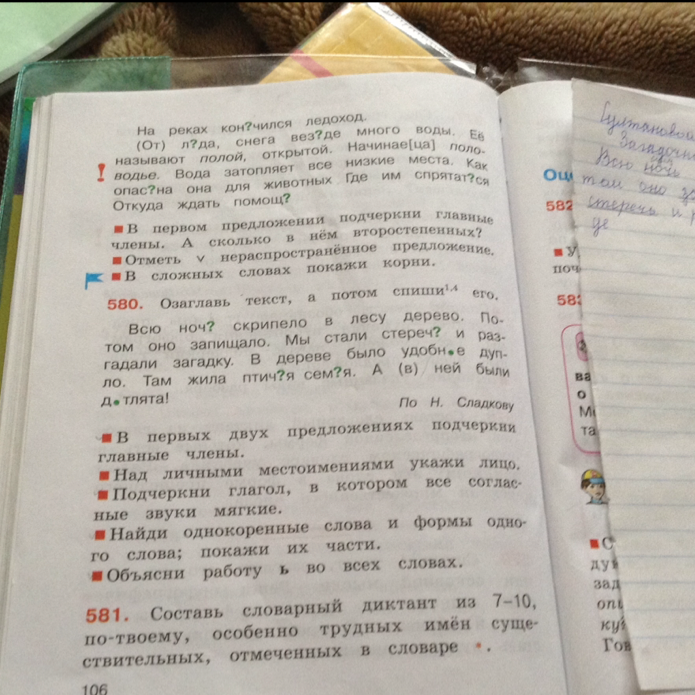 На реках кон?чился ледоход.
(От) л?да, снега вез?де много воды. Её
называют полой, открытой. Начинае[ца] поло-
! водье. Вода затопляет все низкие места. Как
опас?на она для животных Где им спрятат?ся
Откуда ждать помощ?
В первом предложении подчеркни главные
члены. А сколько в нём второстепенных?
Отметь v нераспространённое предложение.
В сложных словах покажи корни.
580. Озаглавь текст, а потом спиши1,4 его.
Всю ноч? скрипело в лесу дерево. По-
том оно запищало. Мы стали стереч? и раз-
гадали загадку. В дереве было удобн•е дуп-
ло. Там жила птич?я сем?я. А (в) ней были
д•тлята!
По Н. Сладкову
В первых двух предложениях подчеркни
главные члены.
Над личными местоимениями укажи лицо.
Подчеркни глагол, в котором все соглас-
ные звуки мягкие.
Найди однокоренные слова и формы одно-
го слова; покажи их части.
Объясни работу ь во всех словах.
581. Составь словарный диктант из 7–10,
по-твоему, особенно трудных имён суще-
ствительных, отмеченных в словаре •.
106
582
поч
58
ва
о
та
зад
Гов
Всю ночь
том оно
стеречь и